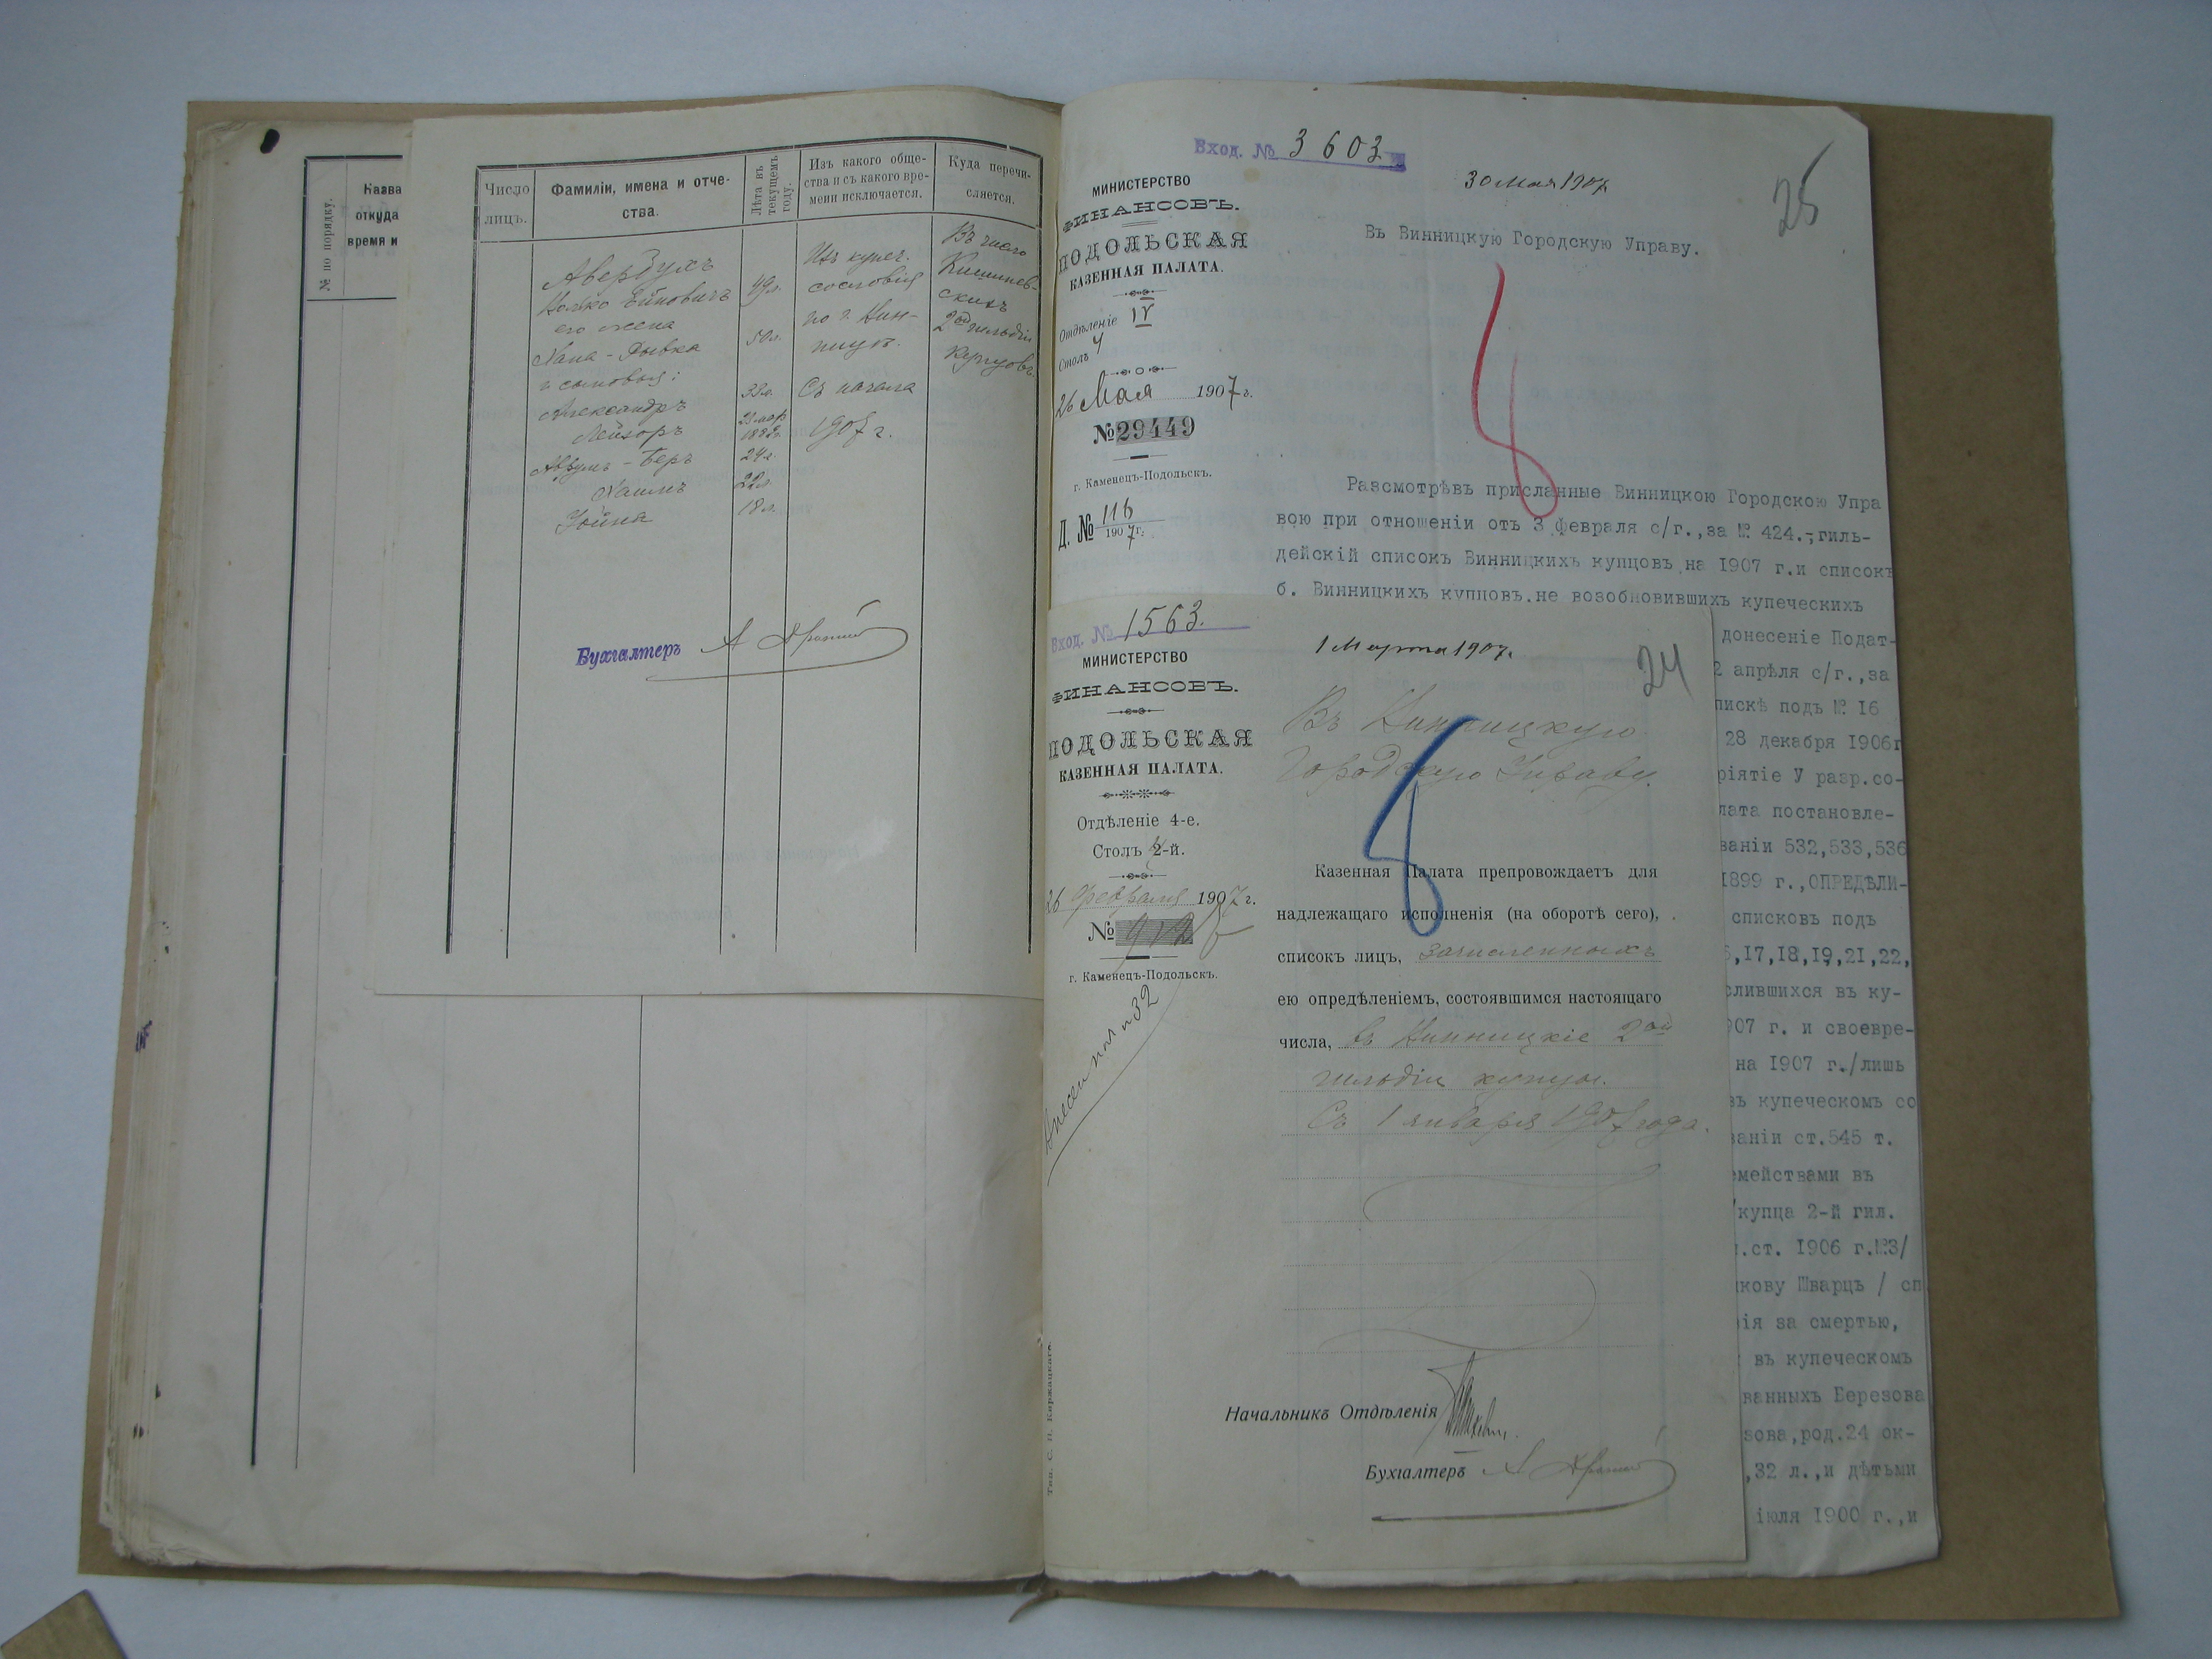 № по порядку.
Назва
откуда
время и
Число лицъ.
Фамиліи, имена и отче-
ства.
Лѣта въ текущемъ году.
Изъ какого обще-
ства и съ какого вре-
мени исключается.
Куда перечи-
сляется.
Авербухъ
его жена
Хана - Рывка
и сыновья:
Александръ
Лейзоръ
Аврумъ - Беръ
Хаимъ
Іойна
49 л.
50 л.
33 л.
24 л.
22 л.
18 л.
Изъ купеч.
сословія
по г. Вин-
ницѣ.
Съ начала
1907 г.
Въ число
Кишинев-
скихъ
2ой гильдіи
купцовъ.
Бухгалтеръ
Вход. № 3603
30 Мая 1907.
25
МИНИСТЕРСТВО
ФИНАНСОВЪ.
ПОДОЛЬСКАЯ
КАЗЕННАЯ ПАЛАТА.
Отдѣленіе IV
Столъ 4
26 Мая 1907 г.
№ 29449
г. Каменецъ-Подольскъ.
Д. № 116
1907 г.
Въ Винницкую Городскую Управу.
Разсмотрѣвъ присланные Винницкою Городскою Упра
вою при отношеніи отъ 3 февраля с/г.,за № 424.-,гиль-
дейскій списокъ Винницкихъ купцовъ на 1907 г.и списокъ
б. Винницкихъ купцовъ.не возобновившихъ купеческихъ
донесеніе Подат-
2 апрѣля с/г.,за
пискѣ подъ № 16
28 декабря 1906г
ріятіе У разр.со-
лата постановле-
ваніи 532,533,536
1899 г.,ОПРЕДѢЛИ-
списковъ подъ
,17,18,19,21,22,
слившихся въ ку-
907 г. и своевре-
на 1907 г./лишь
въ купеческомъ со
ваніи ст.545 т.
емействами въ
/купца 2-й гил.
.ст. 1906 г.№3/
кову Шварцъ / сп
ія за смертью,
въ купеческомъ
ванныхъ Березова
зова,род.24 ок-
,32 л.,и дѣтьми
іюля 1900 г.,и
Вход. № 1563.
1 Марта 1907.
24
МИНИСТЕРСТВО
ФИНАНСОВЪ.
ПОДОЛЬСКАЯ
КАЗЕННАЯ ПАЛАТА.
Отдѣленіе 4-е.
Столъ 2-й.
26 февраля 1907 г.
№
г. Каменецъ-Подольскъ.
Внесен под № 32
Въ Винницкую
Городскую Управу.
Казенная Палата препровождаетъ для
надлежащаго исполненія (на оборотѣ сего),
списокъ лицъ, зачисленныхъ
ею опредѣленіемъ, состоявшимся настоящаго
числа, въ Винницкіе 2ой
гильдіи купцы.
Съ 1 января 1907 года.
Начальникъ Отдѣленія
Бухгалтеръ
Тип. С. П. Киржацкаго.